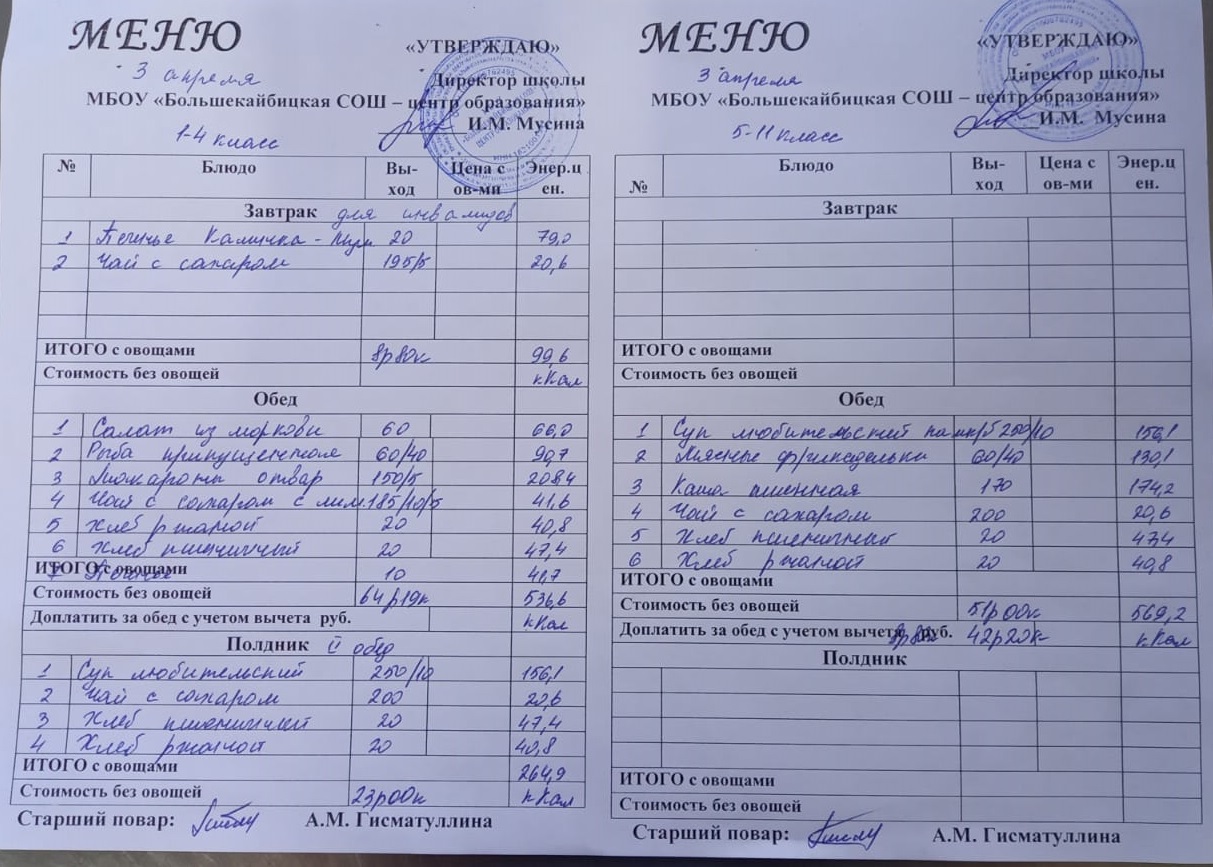 МЕНЮ
«УТВЕРЖДАЮ»
3 апреля
Директор школы
МБОУ «Большекайбицкая СОШ – центр образования»
И.М. Мусина
1-4 класс
№ Блюдо Вы-ход Цена с ов-ми Энер.ц ен.
Завтрак для инвалидов
1 Печенье Калинка - 20 79,0
2 Чай с сахаром 195/5 20,6
ИТОГО с овощами 8р80к 99,6
Стоимость без овощей кКал
Обед
1 Салат из моркови 60 66,0
2 Рыба припущенная 60/40 90,7
3 Макароны отвар 150/5 208,4
4 Чай с сахаром с лим. 185/10/5 41,6
5 Хлеб ржаной 20 40,8
6 Хлеб пшеничный 20 47,4
ИТОГО с овощами
7 Печенье 10 41,7
Стоимость без овощей 64р19к 536,6
Доплатить за обед с учетом вычета руб. кКал
Полдник II обед
1 Суп любительский 250/10 156,1
2 Чай с сахаром 200 20,6
3 Хлеб пшеничный 20 47,4
4 Хлеб ржаной 20 40,8
ИТОГО с овощами 264,9
Стоимость без овощей 23р00к кКал
Старший повар: А.М. Гисматуллина
МЕНЮ
«УТВЕРЖДАЮ»
3 апреля
Директор школы
МБОУ «Большекайбицкая СОШ – центр образования»
И.М. Мусина
5-11 класс
№ Блюдо Вы-ход Цена с ов-ми Энер.ц ен.
Завтрак
ИТОГО с овощами
Стоимость без овощей
Обед
1 Суп любительский 250/10 156,1
2 Мясные фрикадельки 60/40 130,1
3 Каша пшенная 170 174,2
4 Чай с сахаром 200 20,6
5 Хлеб пшеничный 20 47,4
6 Хлеб ржаной 20 40,8
ИТОГО с овощами
Стоимость без овощей 51р00к 569,2
Доплатить за обед с учетом вычета 8р80к руб. 42р20к кКал
Полдник
ИТОГО с овощами
Стоимость без овощей
Старший повар: А.М. Гисматуллина